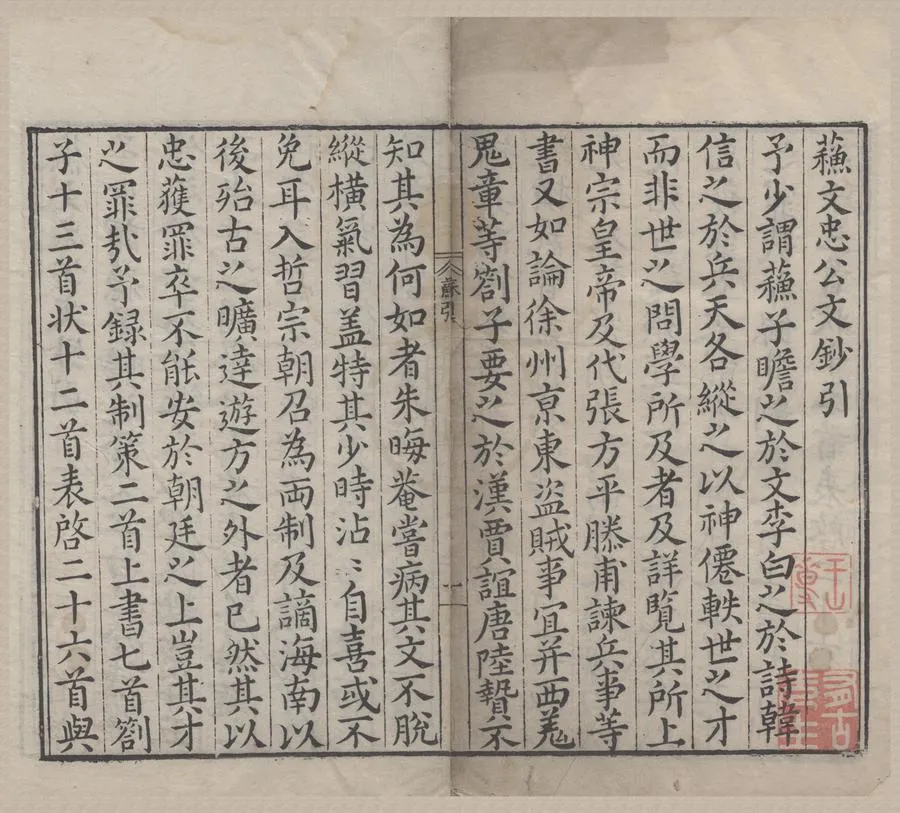 蘓文忠公文鈔引
予少謂蘓子瞻之於文李白之於詩韓
信之於兵天各縱之以神僊軼世之才
而非世之問學所及者及詳覽其所上
神宗皇帝及代張方平滕甫諫兵事等
書又如論徐州京東盜賊事冝并西羗
鬼章等劄子要之於漢賈誼唐陸贄不
蘇引
一
知其為何如者朱晦菴嘗病其文不脫
縱橫氣習盖特其少時沾〻自喜或不
免耳入哲宗朝召為兩制及謫海南以
後殆古之曠達遊方之外者已然其以
忠獲罪卒不能安於朝廷之上豈其才
之罪㢤予録其制策二首上書七首劄
子十三首状十二首表啓二十六首與